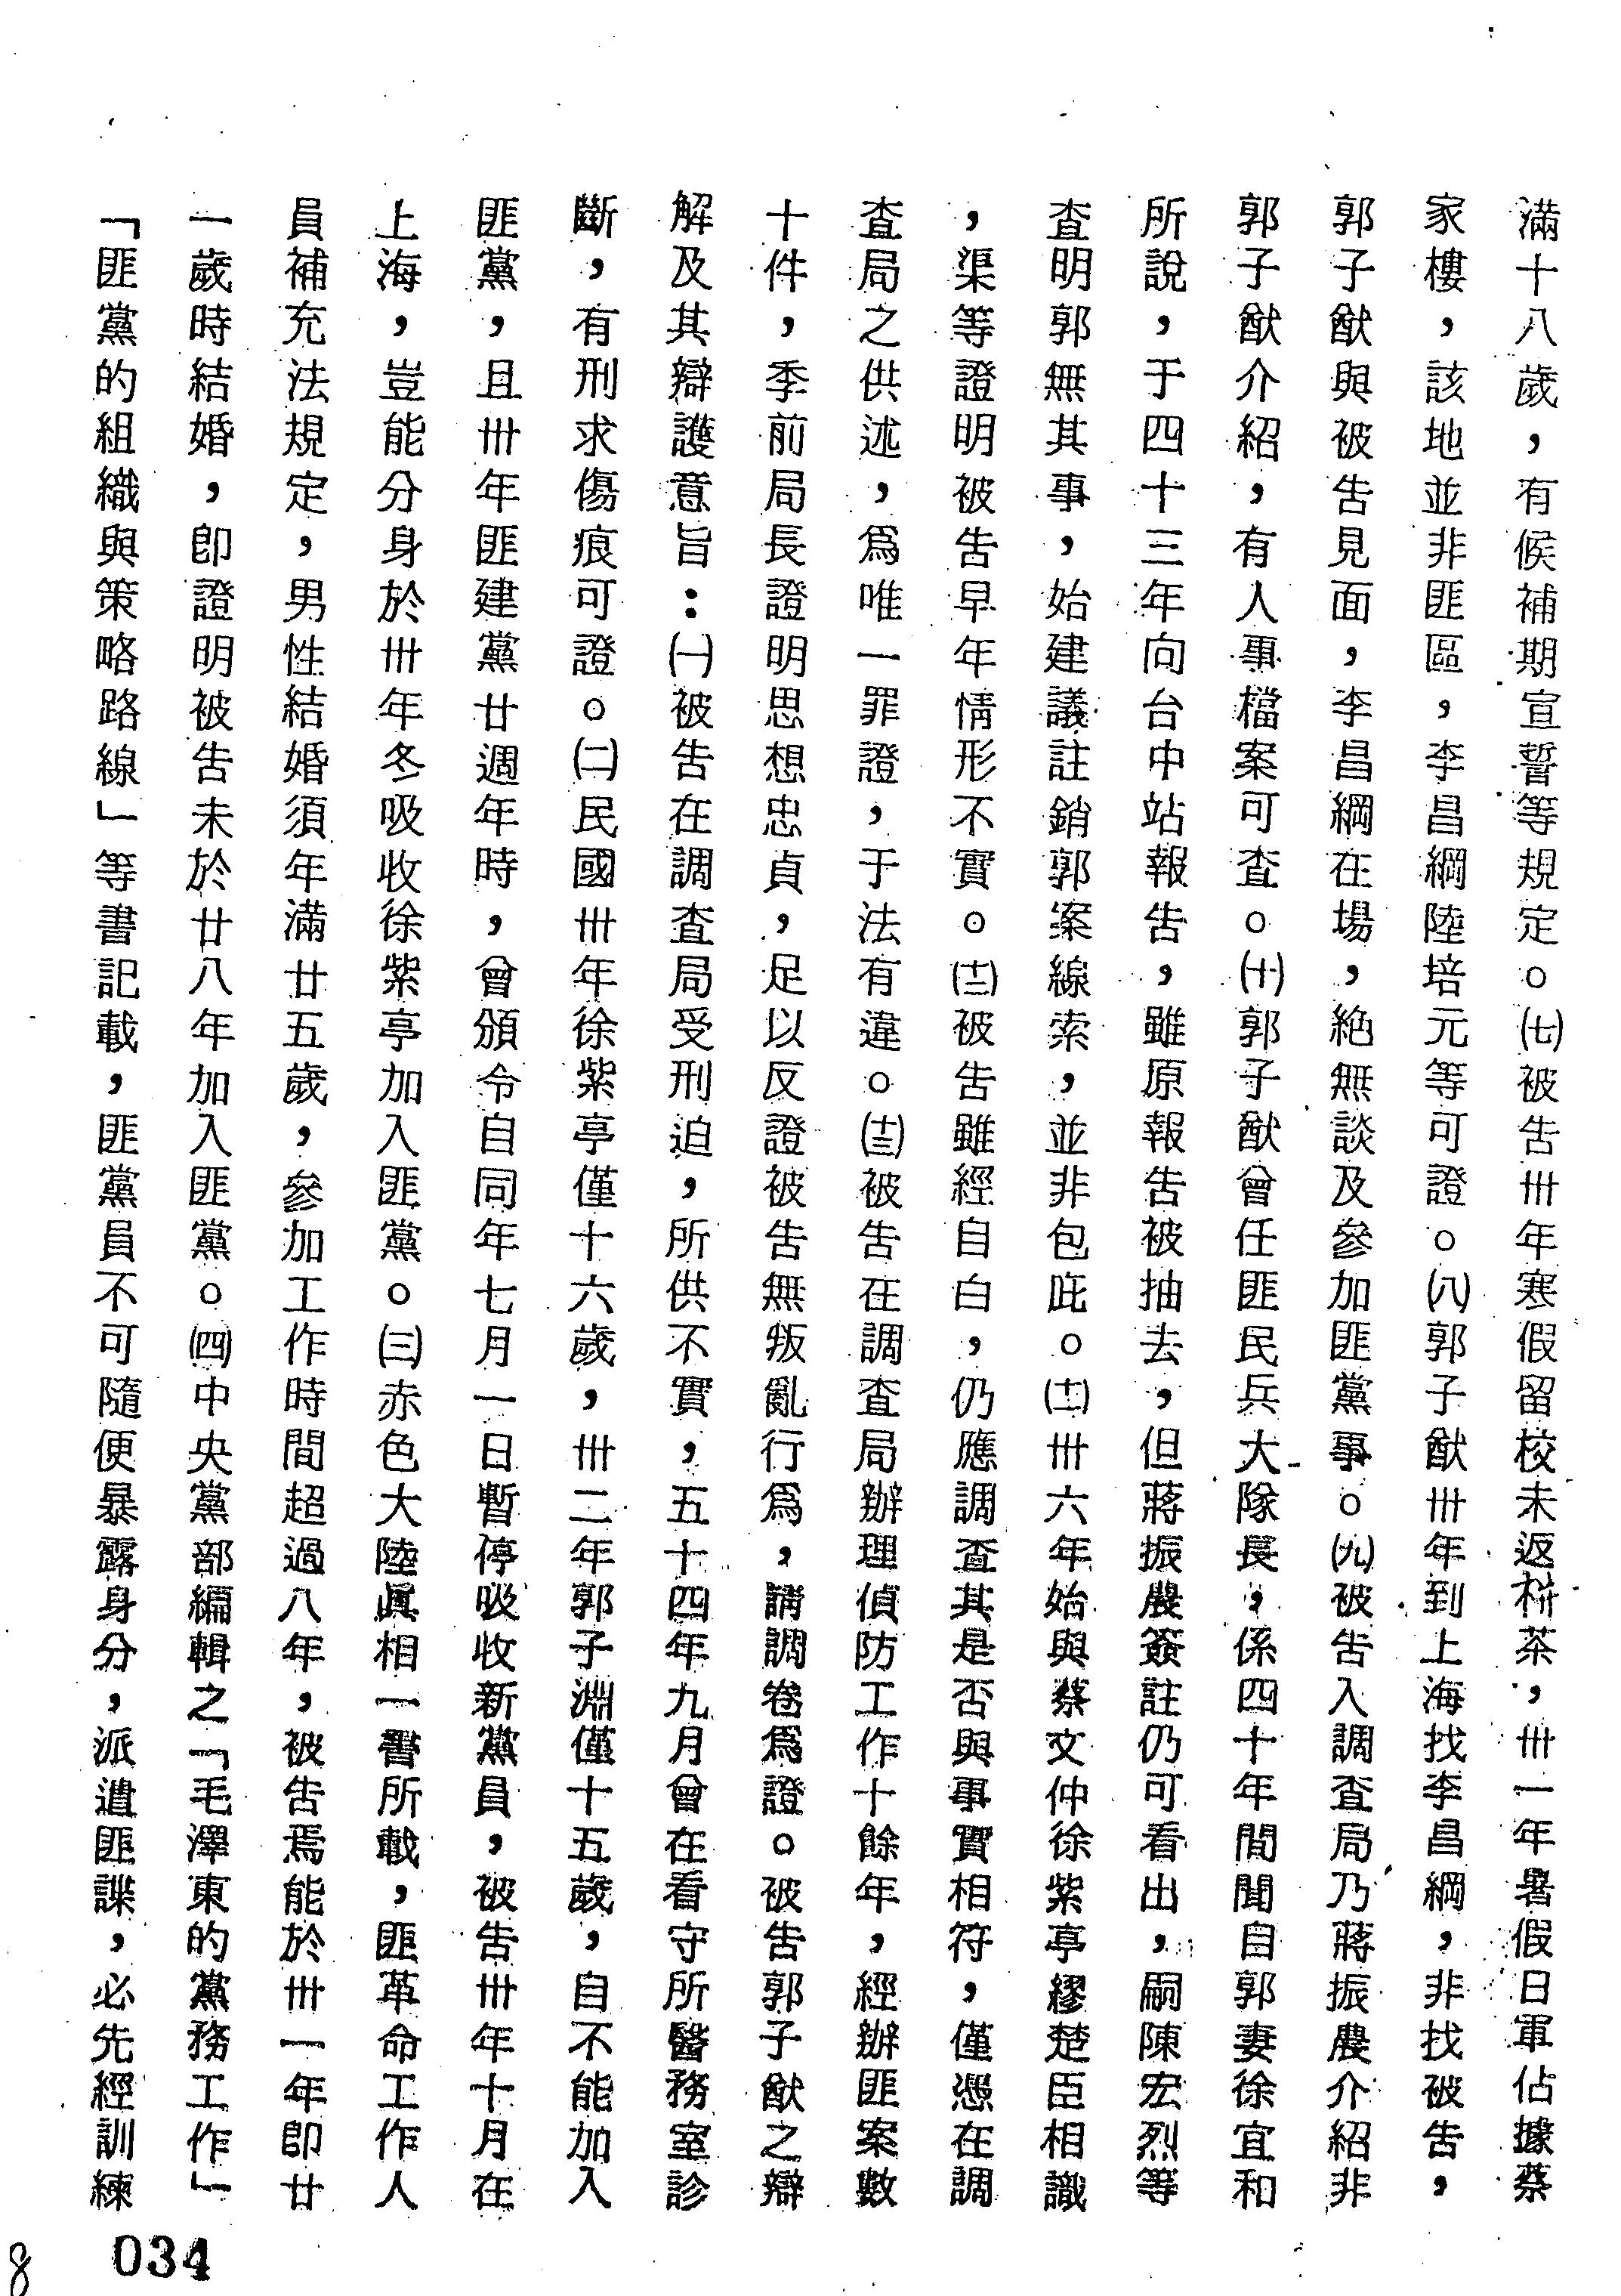 滿十八歲，有候補期宣誓等規定。㈦被告卅年寒假留校未返栟茶，卅一年暑假日軍佔據蔡
家樓，該地並非匪區，李昌綱陸培元等可證。㈧郭子猷卅年到上海找李昌綱，非找被告，
郭子猷與被告見面，李昌綱在場，絕無談及參加匪黨事。㈨被告入調查局乃蔣振農介紹非
郭子猷介紹，有人事檔案可查。㈩郭子猷曾任匪民兵大隊長，係四十年間聞自郭妻徐宜和
所說，于四十三年向台中站報告，雖原報告被抽去，但蔣振農簽註仍可看出，嗣陳宏烈等
查明郭無其事，始建議註銷郭案線索，並非包庇。(十一)卅六年始與蔡文仲徐紫亭繆楚臣相識
，渠等證明被告早年情形不實。(十二)被告雖經自白，仍應調查其是否與事實相符，僅憑在調
查局之供述，爲唯一罪證，于法有違。(十三)被告在調查局辦理偵防工作十餘年，經辦匪案數
十件，季前局長證明思想忠貞，足以反證被告無叛亂行爲，請調卷爲證。被告郭子猷之辯
解及其辯護意旨：㈠被告在調查局受刑迫，所供不實，五十四年九月曾在看守所醫務室診
斷，有刑求傷痕可證。㈡民國卅年徐紫亭僅十六歲，卅二年郭子淵僅十五歲，自不能加入
匪黨，且卅年匪建黨廿週年時，曾頒令自同年七月一日暫停吸收新黨員，被告卅年十月在
上海，豈能分身於卅年冬吸收徐紫亭加入匪黨。㈢赤色大陸眞相一書所載，匪革命工作人
員補充法規定，男性結婚須年滿廿五歲，參加工作時間超過八年，被告焉能於卅一年卽廿
一歲時結婚，卽證明被告未於廿八年加入匪黨。㈣中央黨部編輯之「毛澤東的黨務工作」
「匪黨的組織與策略路線」等書記載，匪黨員不可隨便暴露身分，派遣匪諜，必先經訓練
034
8